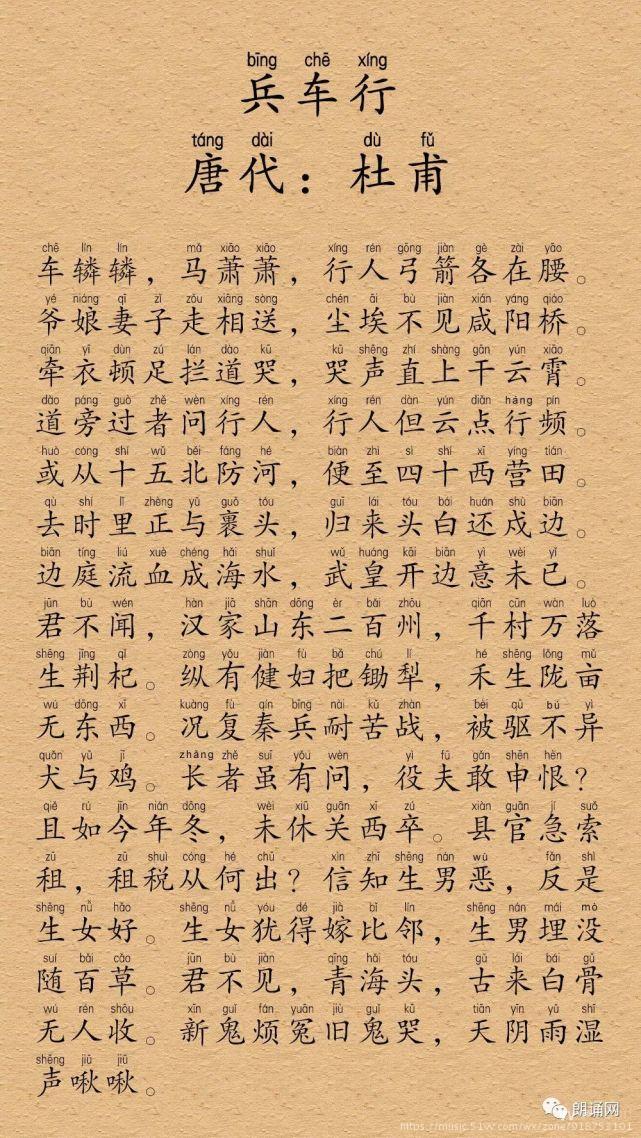 bīng chē xíng
兵车行
táng dài dù fǔ
唐代：杜甫
chē lín lín mǎ xiāo xiāo xíng rén gōng jiàn gè zài yāo
车辚辚，马萧萧，行人弓箭各在腰。
yé niáng qī zǐ zǒu xiāng sòng chén āi bù jiàn xián yáng qiáo
爷娘妻子走相送，尘埃不见咸阳桥。
qiān yī dùn zú lán dào kū kū shēng zhí shàng gān yún xiāo
牵衣顿足拦道哭，哭声直上干云霄。
dào páng guò zhě wèn xíng rén xíng rén dàn yún diǎn háng pín
道旁过者问行人，行人但云点行频。
huò cóng shí wǔ běi fáng hé biàn zhì sì shí xī yíng tián
或从十五北防河，便至四十西营田。
qù shí lǐ zhèng yǔ guǒ tóu guī lái tóu bái huán shù biān
去时里正与裹头，归来头白还戍边。
biān tíng liú xuè chéng hǎi shuǐ wǔ huáng kāi biān yì wèi yǐ
边庭流血成海水，武皇开边意未已。
jūn bù wén hàn jiā shān dōng èr bǎi zhōu qiān cūn wàn luò
君不闻，汉家山东二百州，千村万落
shēng jīng qǐ zòng yǒu jiàn fù bǎ chú lí hé shēng lǒng mǔ
生荆杞。纵有健妇把锄犁，禾生陇亩
wú dōng xī kuàng fù qín bīng nài kǔ zhàn bèi qū bú yì
无东西。况复秦兵耐苦战，被驱不异
quǎn yǔ jī zhǎng zhě suī yǒu wèn yì fū gǎn shēn hèn
犬与鸡。长者虽有问，役夫敢申恨？
qiě rú jīn nián dōng wèi xiū guān xī zú xiàn guān jí suǒ
且如今年冬，未休关西卒。县官急索
zū zū shuì cóng hé chū xìn zhī shēng nán wù fǎn shì
租，租税从何出？信知生男恶，反是
shēng nǚ hǎo shēng nǚ yóu dé jià bǐ lín shēng nán mái mò
生女好。生女犹得嫁比邻，生男埋没
suí bǎi cǎo jūn bù jiàn qīng hǎi tóu gǔ lái bái gǔ
随百草。君不见，青海头，古来白骨
wú rén shōu xīn guǐ fán yuān jiù guǐ kū tiān yīn yǔ shī
无人收。新鬼烦冤旧鬼哭，天阴雨湿
shēng jiū jiū
声啾啾。
朗诵网